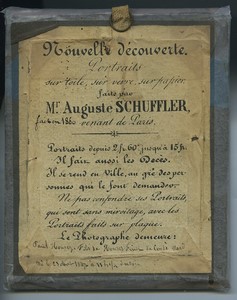 Nouvelle découverte.
Portraits
sur toile, sur verre, sur papier
faits par
Mr Auguste SCHUFFLER,
venant de Paris.
Portraits depuis 2 f. 60 jusqu'à 15 f.
Il fait aussi les Décès.
Il se rend en Ville, au gré des per-
sonnes qui le font demander.
Ne pas confondre ses Portraits,
qui sont sans miroitage, avec les
Portraits faits sur plaque.
Le Photographe demeure: